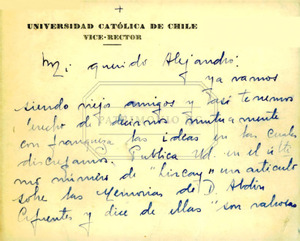 +
UNIVERSIDAD CATÓLICA DE CHILE
VICE-RECTOR
Mi querido Alejandro:
ya vamos
siendo viejos amigos y casi tenemos
derecho de decirnos mutuamente
con franqueza las ideas en las cuales
discrepamos. Publica Ud. en el últi
mo número de "Lircay" un artículo
sobre las Memorias de D. Abdón
Cifuentes y dice de ellas "son valiosas